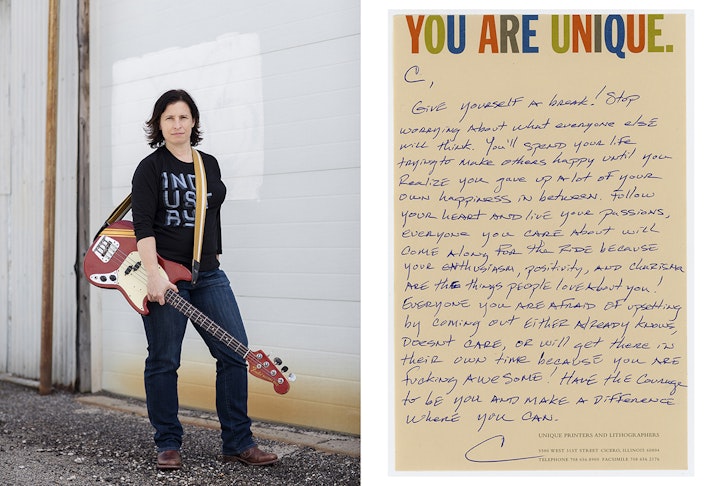 IND
UST
RY
YOU ARE UNIQUE.
C,
Give yourself A break! Stop
worrying About what everyone else
will think. You'll spend your life
trying to make others happy until you
Realize you gave up A lot of your
own happiness in between. Follow
your heart AND live your passions,
everyone you CARE About will
come Along for the Ride because
your enthusiasm, positivity, AND charisma
ARE the things people love About you!
Everyone you ARE AFRAID of upsetting
by coming out Either Already knows,
Doesnt CARE, or will get there in
their own time because you ARE
fucking Awesome! Have the Courage
to be you AND MAKE A DIFFERENCE
where you CAN.
C
UNIQUE PRINTERS AND LITHOGRAPHERS
5500 WEST 31ST STREET CICERO, ILLINOIS 60804
TELEPHONE 708.656.8900 FACSIMILE 708.656.2176